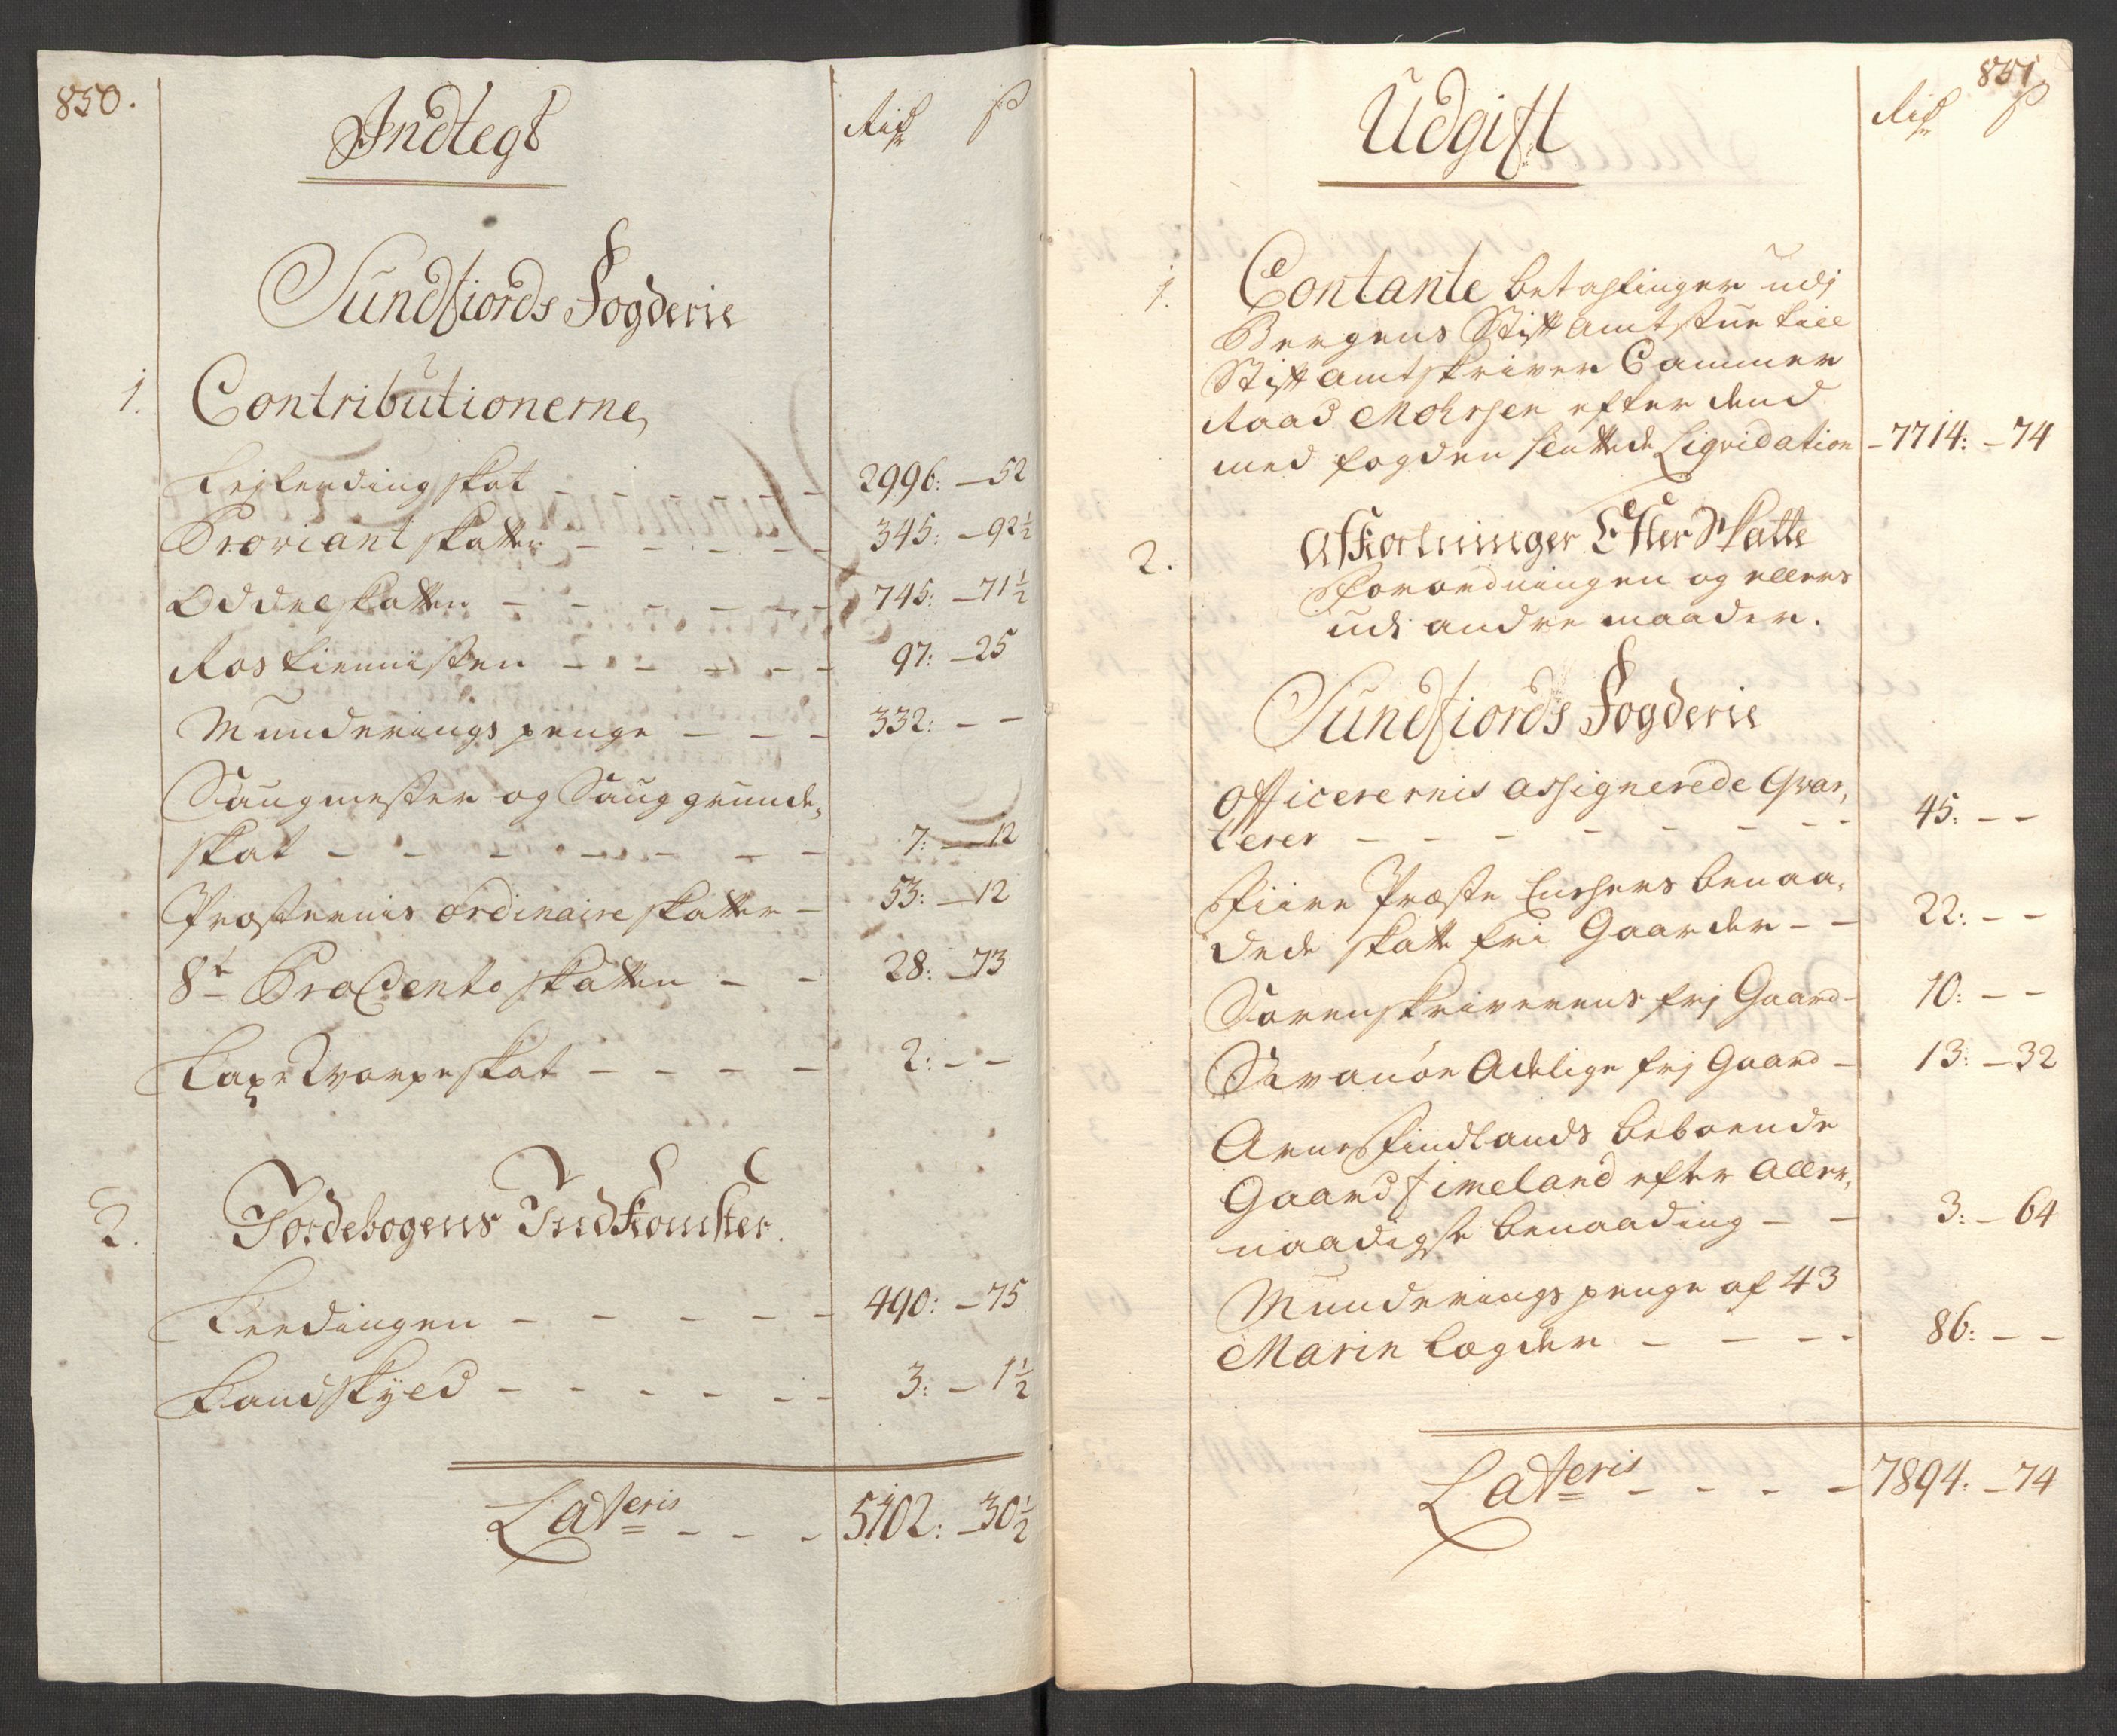 850.
Indtegt
Rdr ß
Sundfiords Fogderie
1. Contributionerne,
Leilendingskat - - - - - - 2996: - 52
Proviantskatten - - - - - 345: - 92½
Oddelskatten - - - - - 745: - 71½
Rostienisten - - - - - 97: - 25
Munderings penge - - - 332: - -
Saugmester og Sauggrunde,
skat - - - - - - - 7: - 12
Præsternis ordinaire skatter - 53: - 12
8t ProCento skatten - - 28: - 73
Qvarpeskat - - - - 2: - -
2. Jordebogens Indkomster.
Leedingen - - - - - 490: - 75
Landskyld - - - - - - 3: - 1½
Lateris - - - 5102: - 30½
851
Udgift
Rdr ß
1. Contante betalinger udj
Bergens Stiftamtstue till
Stiftamtskriver Cammer
Raad Mohrsen efter dend
med fogden sluttede Liqvidation - 7714: - 74
2. Afkortninger Efter Skatte
forordningen og ellers
udi andre maader.
Sundfiords Fogderie
Officerernis assignerede Qvar,
terer - - - - - - - 45: - -
Fiire Præste Enchers benaa,
dede skatte frie Gaarder - - 22: - -
Sorenskriverens frj Gaard - 10: - -
Svanøe Adelige frj Gaard - 13: - 32
Arne Findlands beboende
Gaard Fimeland efter Aller,
naadigste benaading - - 3: - 64
Munderings penge af 43
Marin Lægder - - - - 86: - -
Lateris - - - - 7894: - 74